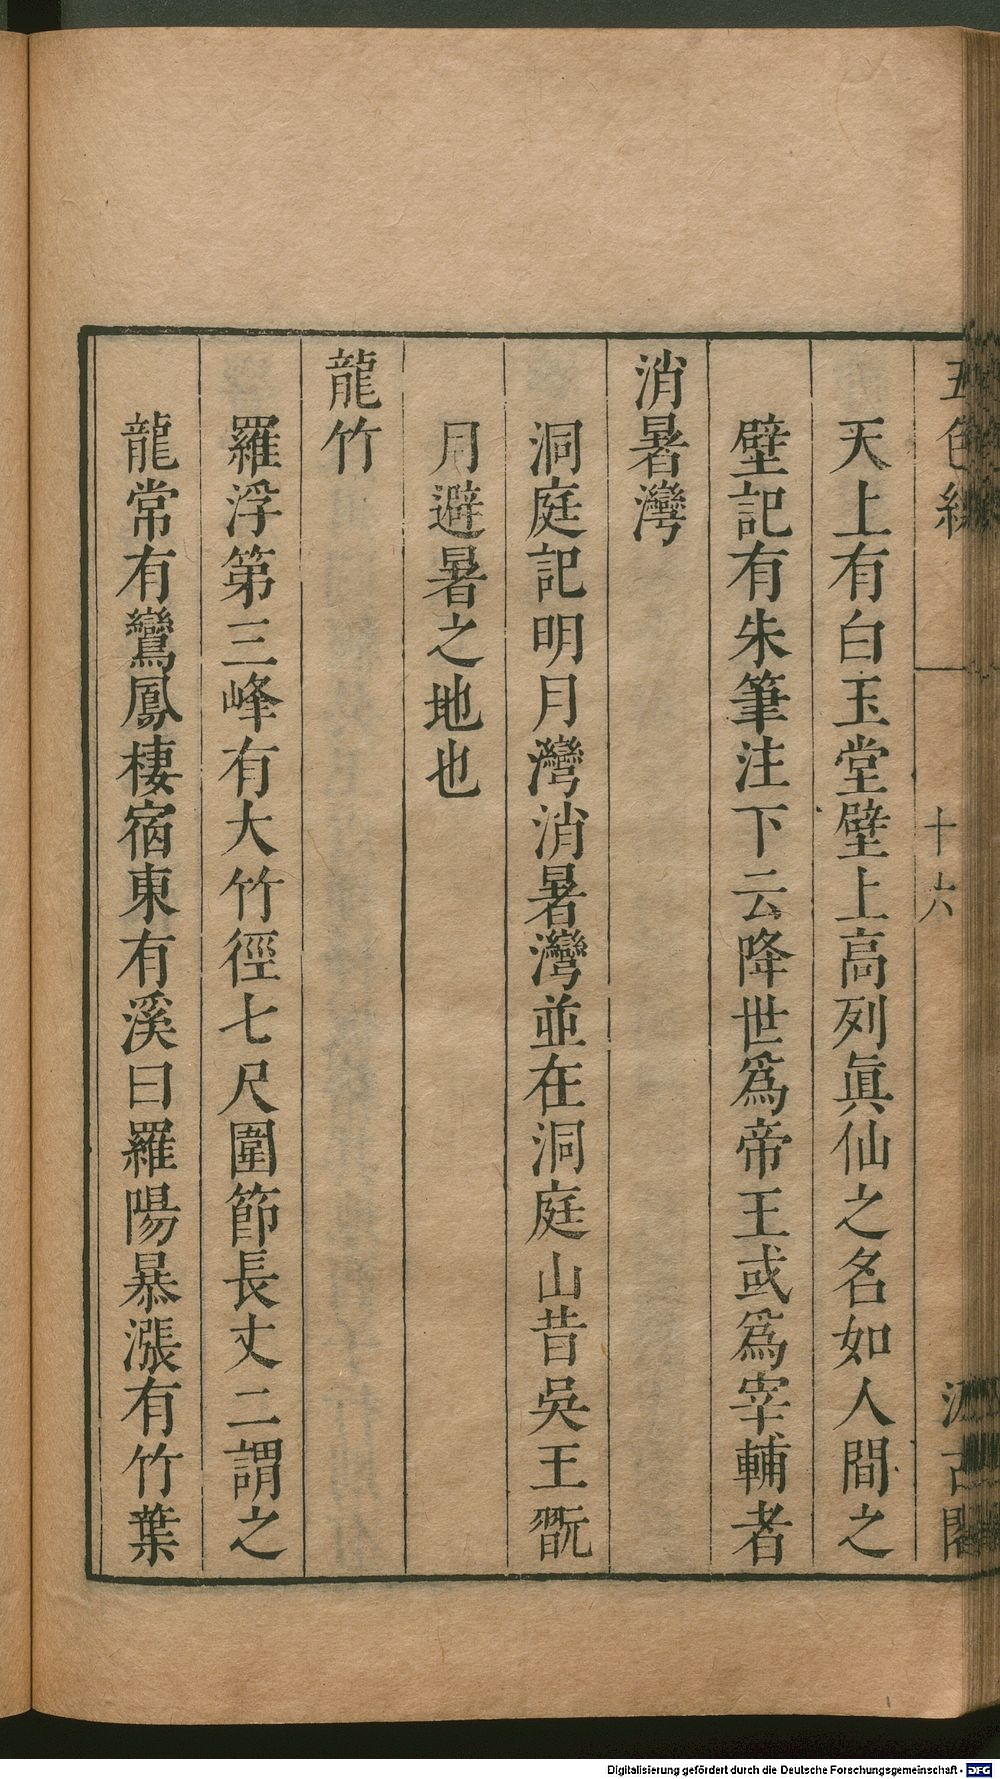 五色線
十六
汲古閣
天上有白玉堂壁上高列眞仙之名如人間之
壁記有朱筆注下云降世爲帝王或爲宰輔者
消暑灣
洞庭記明月灣消暑灣並在洞庭山昔吳王翫
月避暑之地也
龍竹
羅浮第三峰有大竹徑七尺圍節長丈二謂之
龍常有鸞鳳棲宿東有溪曰羅陽暴漲有竹葉
Digitalisierung gefördert durch die Deutsche Forschungsgemeinschaft - DFG